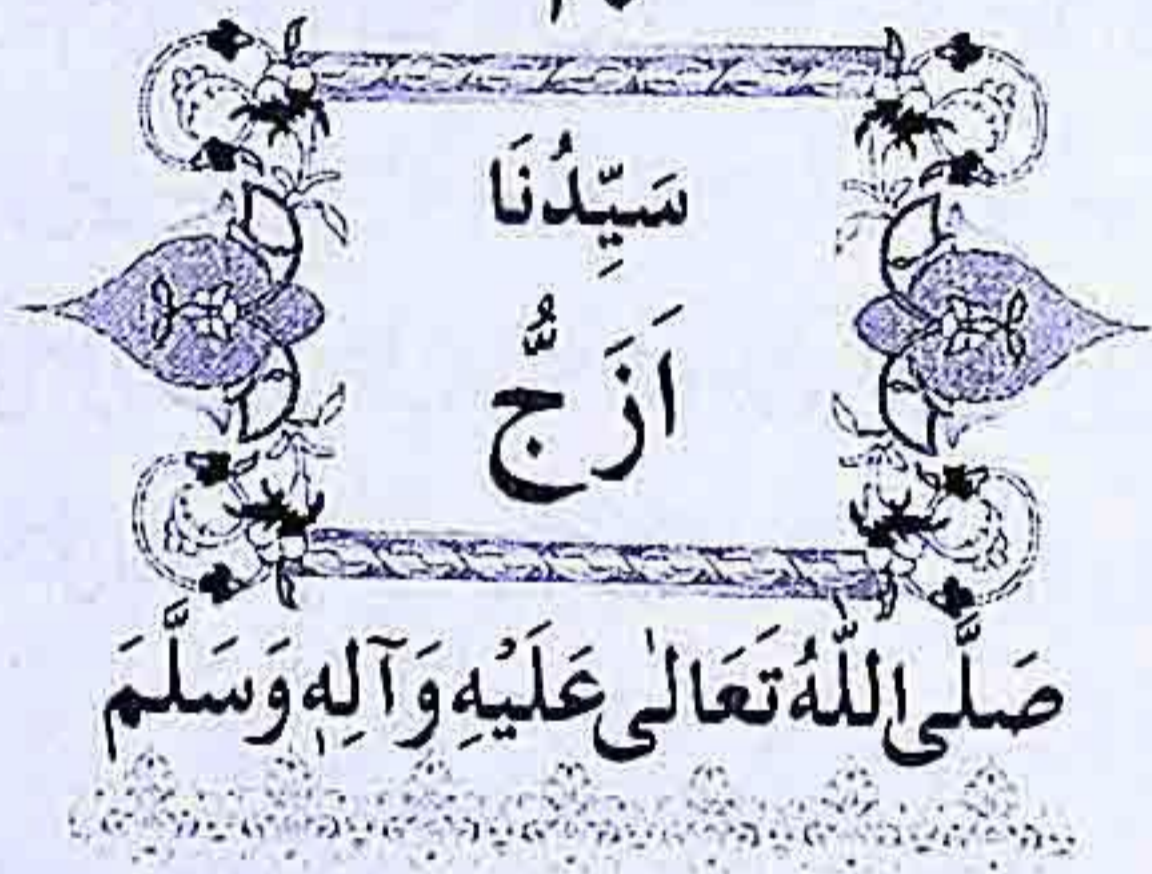 سَيِّدُنَا
اَزَجُّ
صَلَّى اللّٰهُ تَعَالٰى عَلَيْهِ وَآلِهٖ وَسَلَّمَ